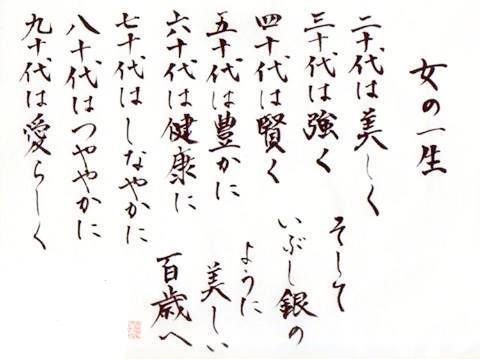 女の一生
二十代は美しく
三十代は強く
四十代は賢く
五十代は豊かに
六十代は健康に
七十代はしなやかに
八十代はつややかに
九十代は愛らしく
そして
いぶし銀の
ように
美しい
百歳へ